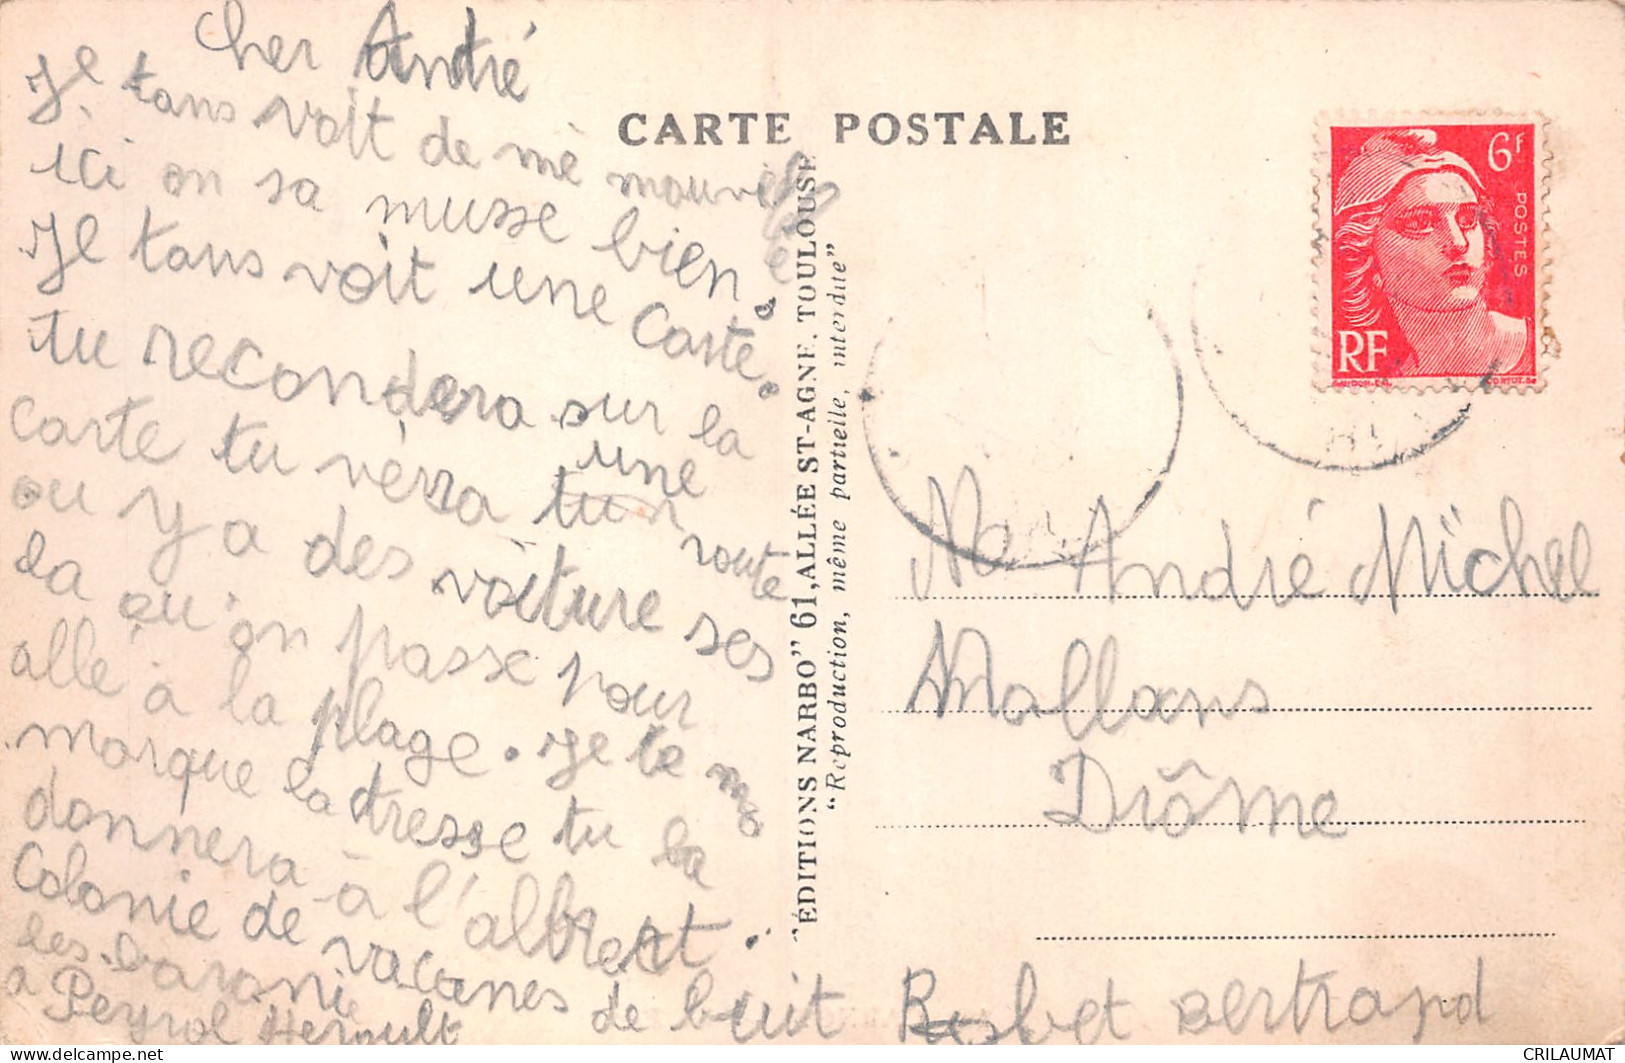 Cher André
Je tans voit de mé mouvi
ici on sa musse bien.
Je tans voit une Carte.
tu recondera sur la
carte tu vérra une route
ou y a des voiture ses
la qu'on passe pour
allé à la plage. Je te
marque la dresse tu la
donnera à l'albrert.
Colonie de vacanes de buit
les baronie
a Peyrol Heroult
CARTE POSTALE
"ÉDITIONS NARBO" 61, ALLÉE ST-AGNE, TOULOUSE
"Reproduction, même partielle, interdite"
6F
POSTES
RF
GANDON-DEL.
CORTOT. SC
Mr André Michel
Mollans
Drôme
Robet Bertrand
delcampe.net
CRILAUMAT